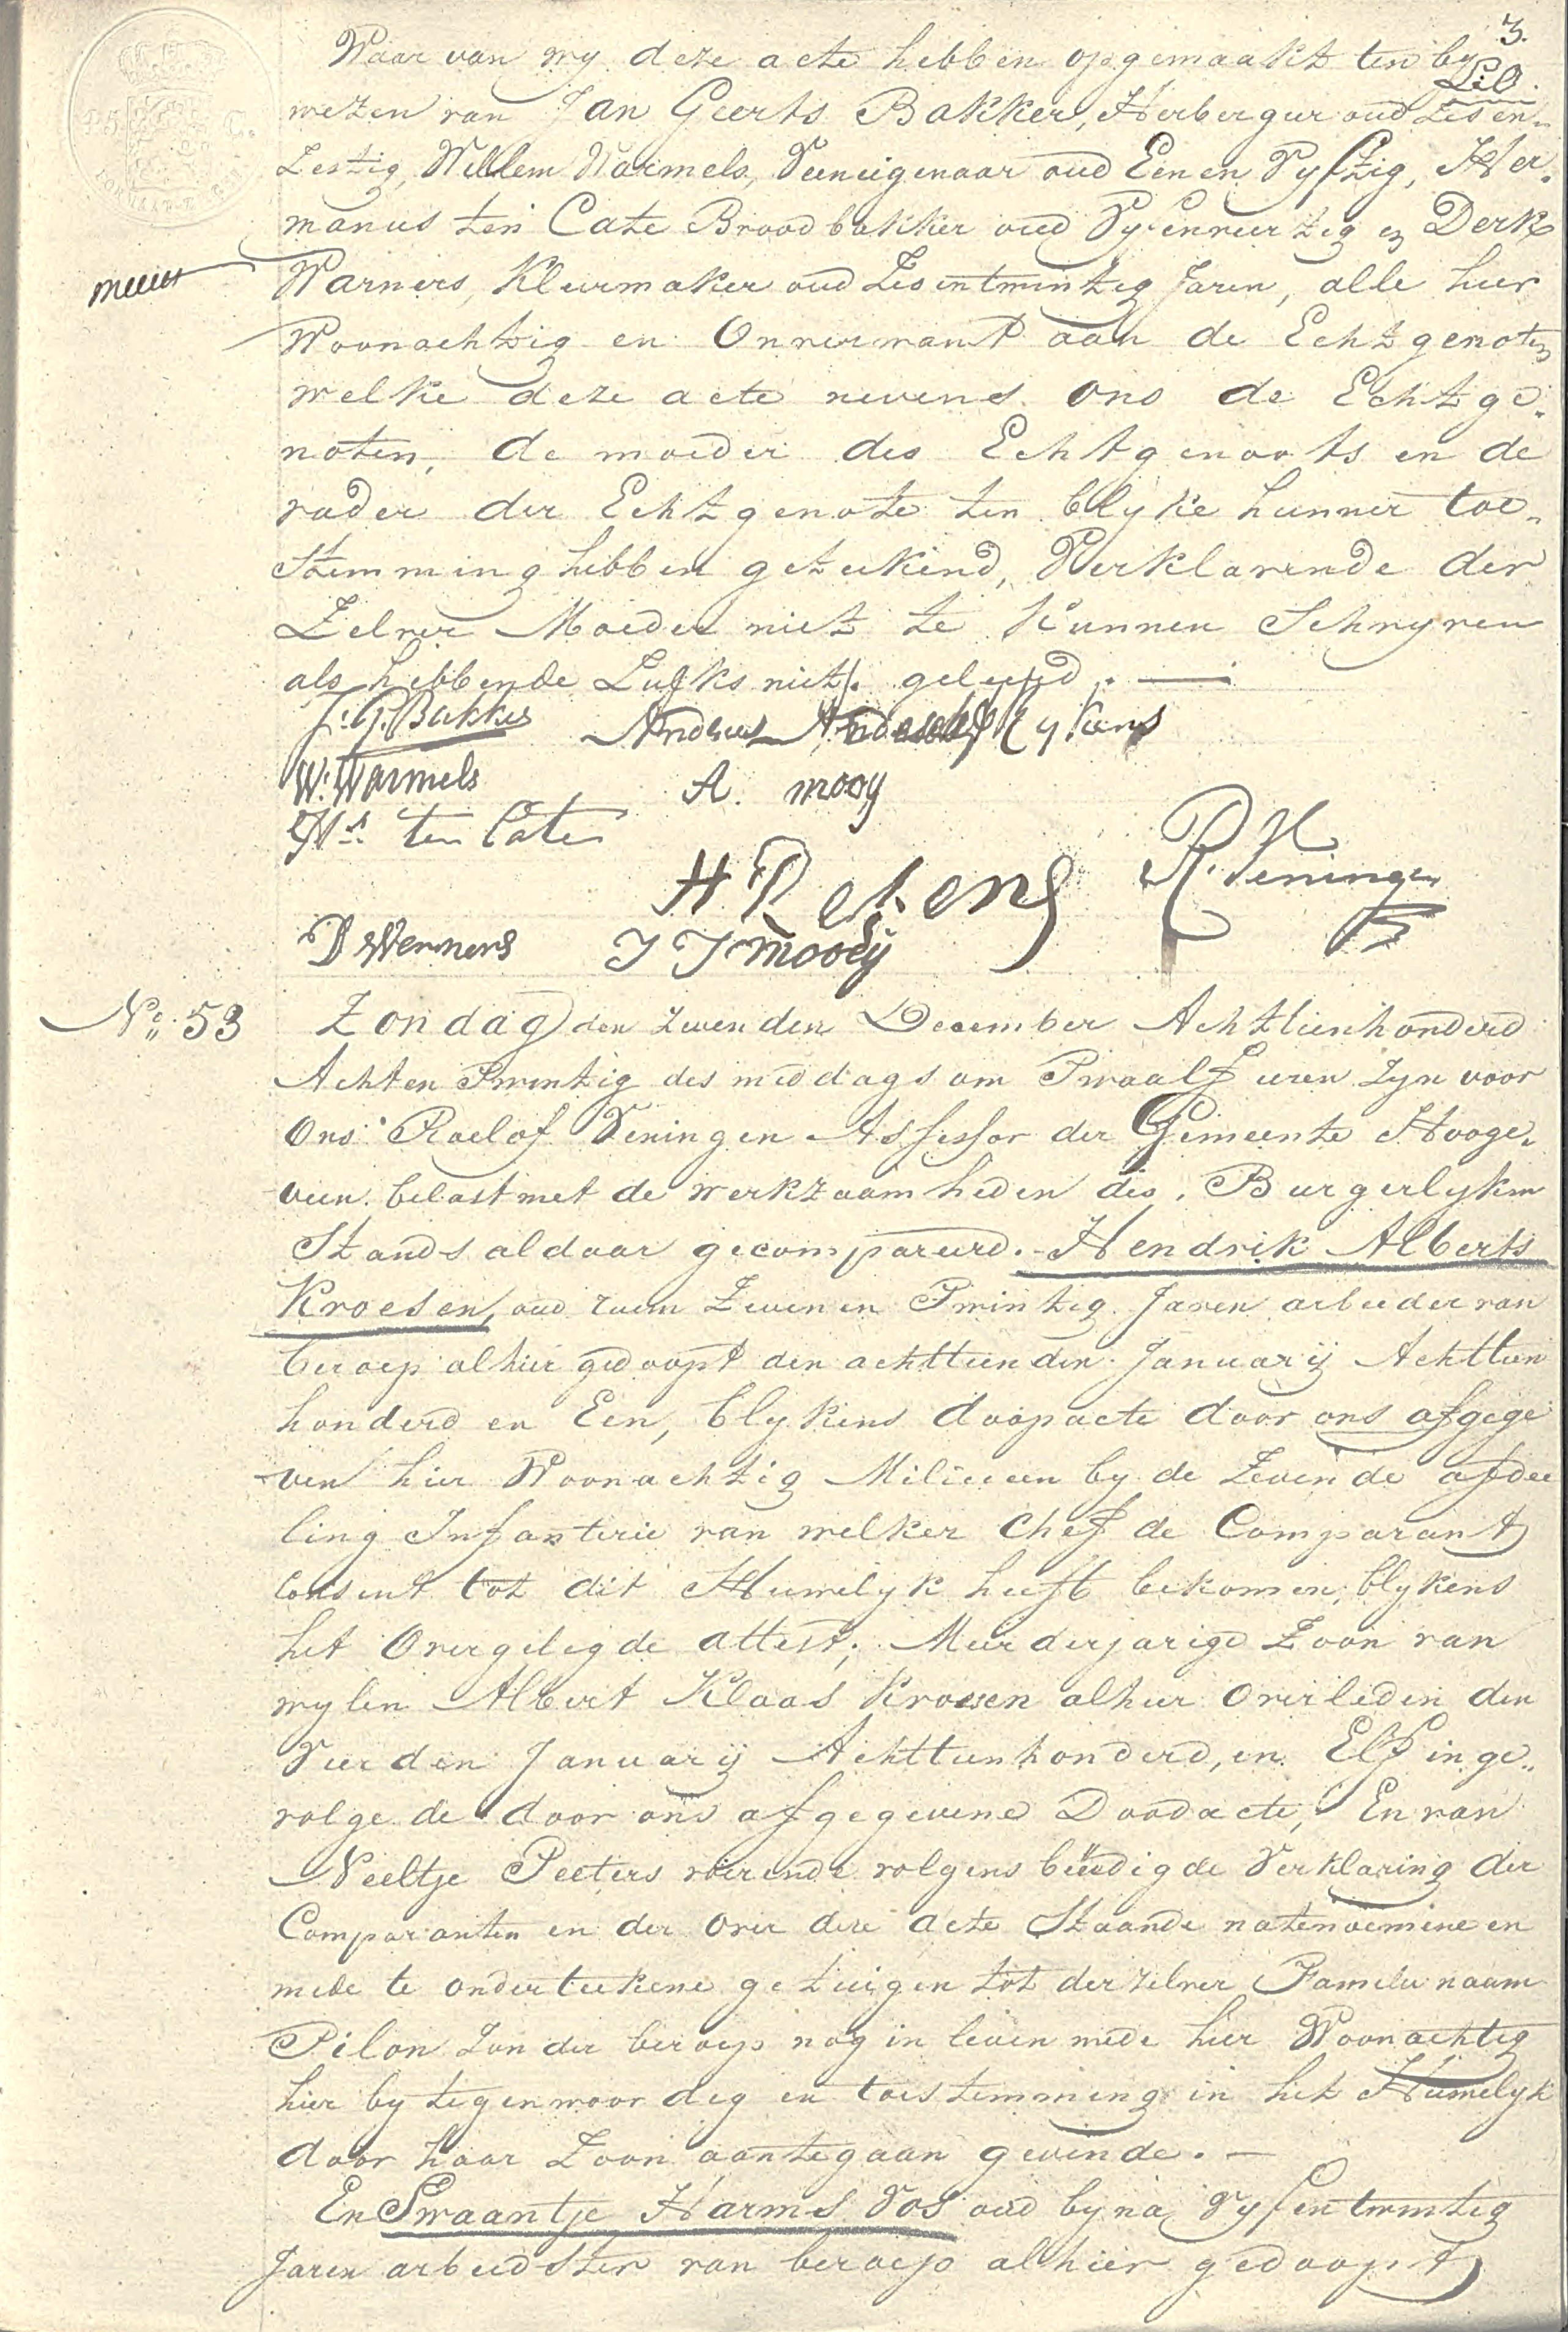 3.
Waar van wy deze acte hebben opgemaakt ten by
wezen van Jan Geerts Bakker, Herbergier oud Zesen-
Zestig, Willem Warmels, Veeneigenaar oud Eenen Vyftig, Her-
manus ten Cate Broodbakker oud Vyfenveertig en Derk
Warners, Kleermaker oud Zesentwintig Jaren, alle hier
Woonachtig en Onverwant aan de Echtgenoten
welke deze acte nevens ons de Echtge-
noten, de moeder des Echtgenoots en de
vader der Echtgenote ten blyke hunner toe-
Stemming hebben geteekend, Verklarende der
Zelver Moeder niet te Kunnen Schryven
als hebbende Zulks niet geleerd. —
J: G: Bakker Andries Eykens
W: Warmels A. mooy
Hs ten Cate
H R R: Veningen
D Werners J J mooy
No: 53 Zondag den zevenden December Achttienhonderd
Achten Twintig des middags om Twaalf uren zyn voor
Ons Roelof Veningen Assessor der Gemeente Hooge-
veen belast met de werkzaamheden des Burgerlyken
Stands aldaar gecompareerd. Hendrik Alberts
Kroesen, oud ruim Zevenen Twintig Jaren arbeider van
beroep alhier gedoopt den achttienden Januarij Achttien
honderd en Een, blykens doopacte door ons afgege
ven hier Woonachtig Milicien by de Zevende afdee
ling Infanterie van welker Chef de Comparant
Consent tot dit Huwelyk heeft bekomen, blykens
het Overgelegde attest; Meerderjarige Zoon van
wylen Albert Klaas Kroesen alhier Overleden den
Vierden Januarij Achttienhonderd, en Elf inge-
volge de door ons afgegevene Doodacte, En van
Neeltje Peeters voerende volgens beëedigde Verklaring der
Comparanten en der Over deze acte Staande natenoemene en
mede te onderteekene getuigen tot derzelver Familie naam
Pilon Zonder beroep nog in leven mede hier Woonachtig
hier by tegenwoordig en toestemming in het Huwelyk
door haar Zoon aantegaan gevende. —
En Swaantje Harms Vos oud byna Vyfentwintig
Jaren arbeidster van beroep alhier gedoopt